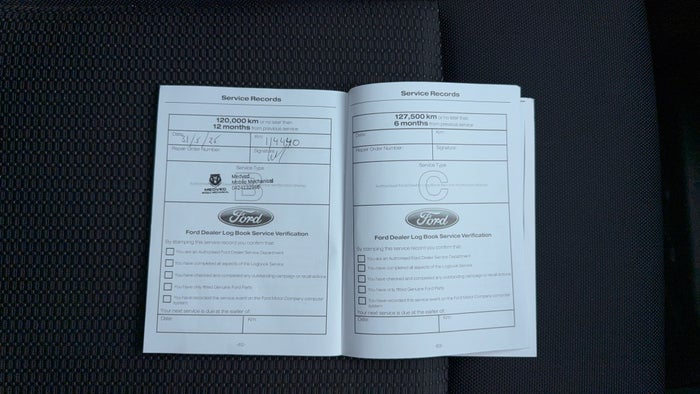 Service Records
120,000 km or no later than
12 months from previous service
Date
Km
31/5/25
114490
Repair Order Number
Signature
Service Type
B
MEDVED
Medved
Mobile Mechanical
Ford
Ford Dealer Log Book Service Verification
By stamping this service record you confirm that:
You are an Authorised Ford Dealer Service Department
You have completed all aspects of the Logbook Service
You have checked and completed any outstanding campaign or recall actions
You have only fitted Genuine Ford Parts
You have recorded this service event on the Ford Motor Company computer
system
Your next service is due at the earlier of:
Date:
Km:
Service Records
127,500 km or no later than
6 months from previous service
Date
Km
Repair Order Number
Signature
Service Type
C
Ford
Ford Dealer Log Book Service Verification
By stamping this service record you confirm that:
You are an Authorised Ford Dealer Service Department
You have completed all aspects of the Logbook Service
You have checked and completed any outstanding campaign or recall actions
You have only fitted Genuine Ford Parts
You have recorded this service event on the Ford Motor Company computer
system
Your next service is due at the earlier of:
Date:
Km: